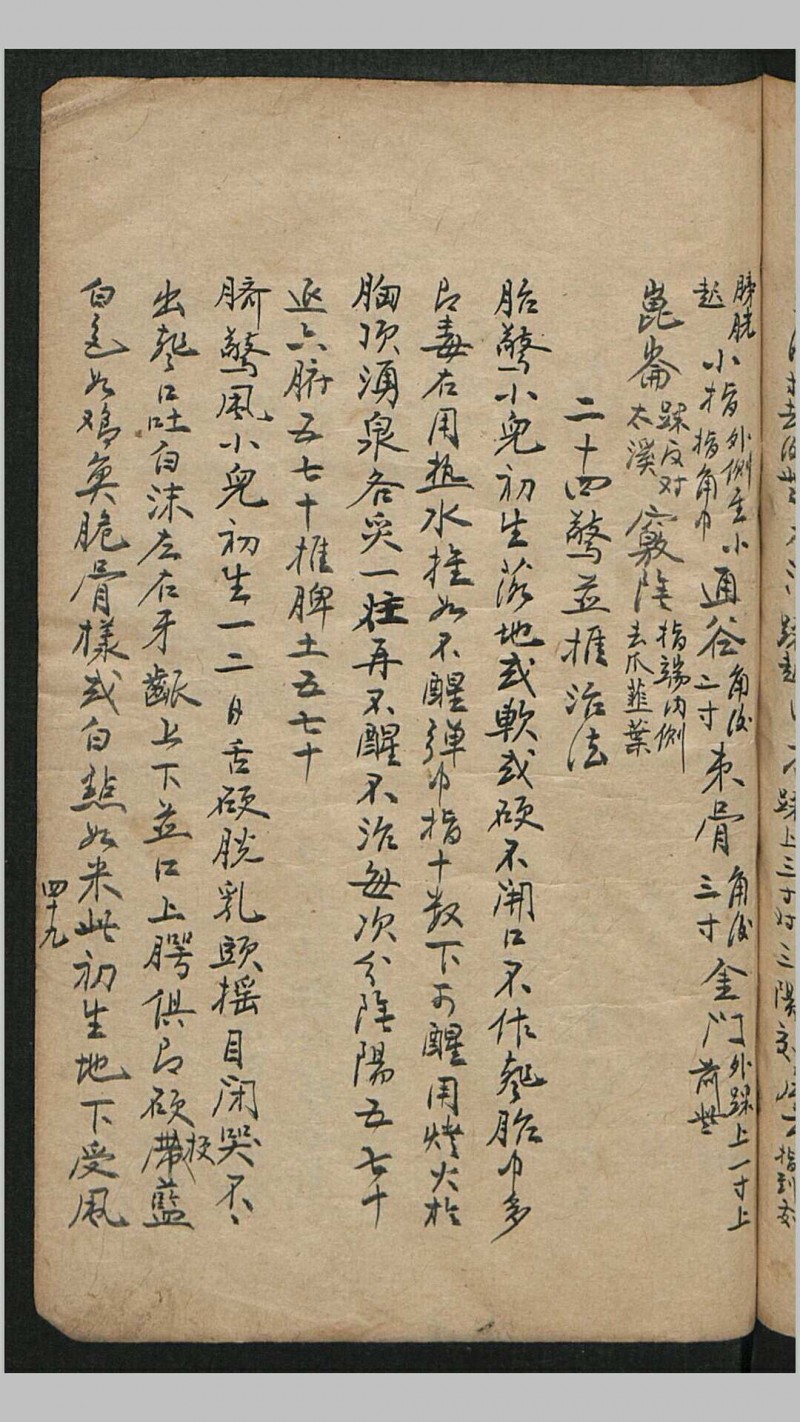 膀胱起小指外側至小指指角巾通谷角後二寸束骨角後三寸金门外踝上一寸上前些
崑崙踝反对太溪竅陰指端内側去爪韮葉
二十四驚並推治法
胎驚小兒初生落地或軟或硬不開口不作聲胎巾多
即毒在用热水推如不醒弹巾指十数下可醒用燈火於
胸顶湧泉各炙一炷再不醒不治每次分陰陽五七十
退六腑五七十推脾土五七十
臍驚風小兒初生一二日舌硬脱乳頭摇目闭哭不
出聲口吐白沫左右牙齦上下並口上腭俱即硬帶藍
白色如鸡魚脆骨樣或白點如米此初生地下受風
四十九